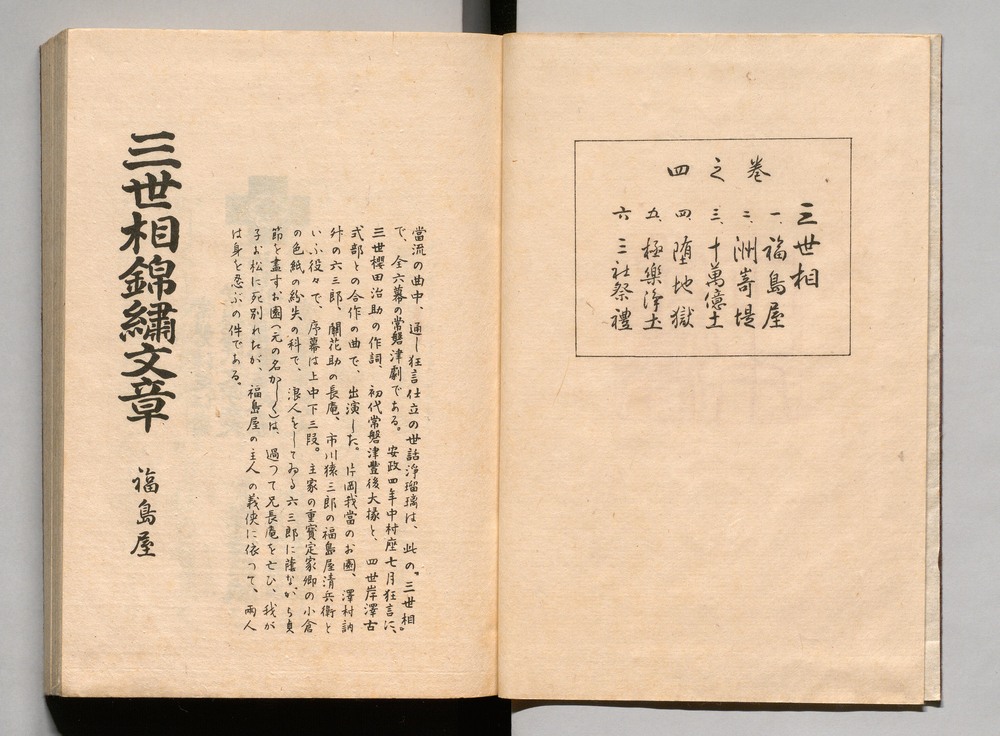 巻之四
三世相
一、福島屋
二、洲嵜堤
三、十萬億土
四、堕地獄
五、極樂浄土
六、三社祭禮
當流の曲中、通し狂言仕立の世話浄瑠璃は、此の〝三世相〟
で、全六幕の常磐津劇である。安政四年中村座七月狂言に、
三世櫻田治助の作詞、初代常磐津豐後大掾と、四世岸澤古
式部との合作の曲で、出演した。片岡我當のお園、澤村訥
舛の六三郎、關花助の長庵、市川猿三郎の福島屋清兵衛と
いふ役々で、序幕は上中下三段。主家の重寶定家卿の小倉
の色紙の紛失の科で、浪人をしてゐる六三郎に蔭ながら貞
節を盡すお園（元の名かしく）は、過つて兄長庵を亡ひ、我が
子お松に死別れたが、福島屋の主人の義侠に依つて、兩人
は身を忍ぶの件である。
三世相錦繍文章　福島屋